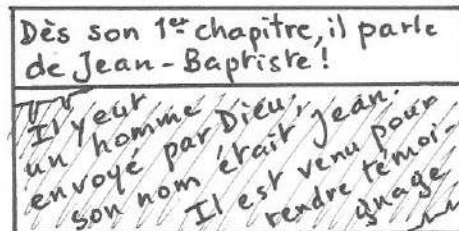 Dès son 1er chapitre, il parle
de Jean-Baptiste !
Il y eut
un homme
envoyé par Dieu,
son nom était Jean.
Il est venu pour
rendre témoi-
gnage